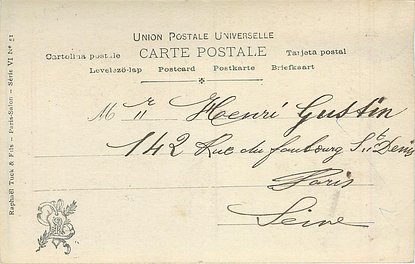 UNION POSTALE UNIVERSELLE
Cartolina postale CARTE POSTALE Tarjeta postal
Levelezö-lap Postcard Postkarte Briefkaart
Mr Henri Gustin
142 Rue du faubourg St Denis
Paris
Seine
Raphaël Tuck & Fils - Paris-Salon - Série VI No 51